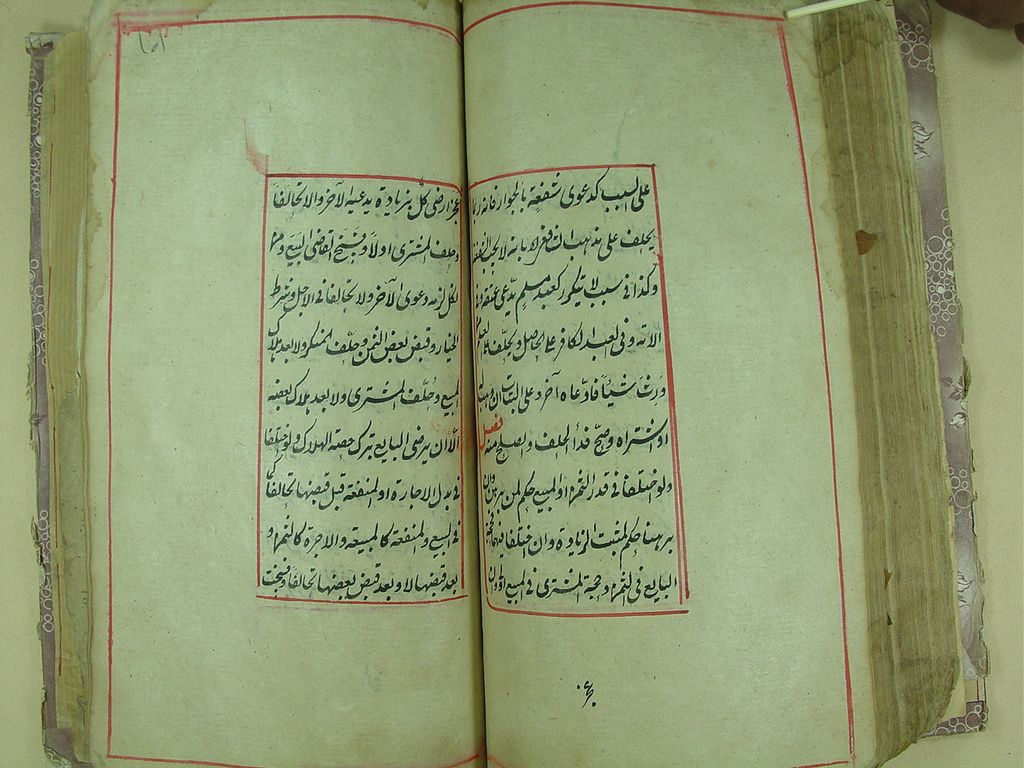 على السبب كدعوى شفعة بالجوار فانه ربما
يحلف على مذهب الشافعى لانه لا يجب النفقة
وكذا فى سبب لا يتكرر كعبد مسلم يدعى عتقه
الامة وفى العبد الكافر على الحاصل ويحلف على العلم
ورث شيئا فادعاه آخر وعلى البتات ان وهب له
او اشتراه وصح فداء الحلف والصلح منه فصل
ولو اختلفا فى قدر الثمن او المبيع حكم لمن برهن وان
برهنا حكم لمثبت الزيادة وان اختلفا فيهما فحجة
البايع فى الثمن وحجة المشترى فى المبيع اولى وان
عجزا رضى كل بزيادة يدعيه الآخر والا تحالفا
وحلف المشترى اولا وفسخ القاضى البيع ومن
نكل لزمه دعوى الآخر ولا تحالفا فى الاجل وشرط
الخيار وقبض بعض الثمن وحلف المنكر ولا بعد هلاك
المبيع وحلف المشترى ولا بعد هلاك بعضه
الا ان يرضى البايع بترك حصة الهلاك ولو اختلفا
فى بدل الاجارة او المنفعة قبل قبضها تحالفا كما
فى البيع والمنفعة كالمبيعة والاجرة كالثمن و
بعد قبضها لا وبعد قبض بعضها تحالفا وفسخت